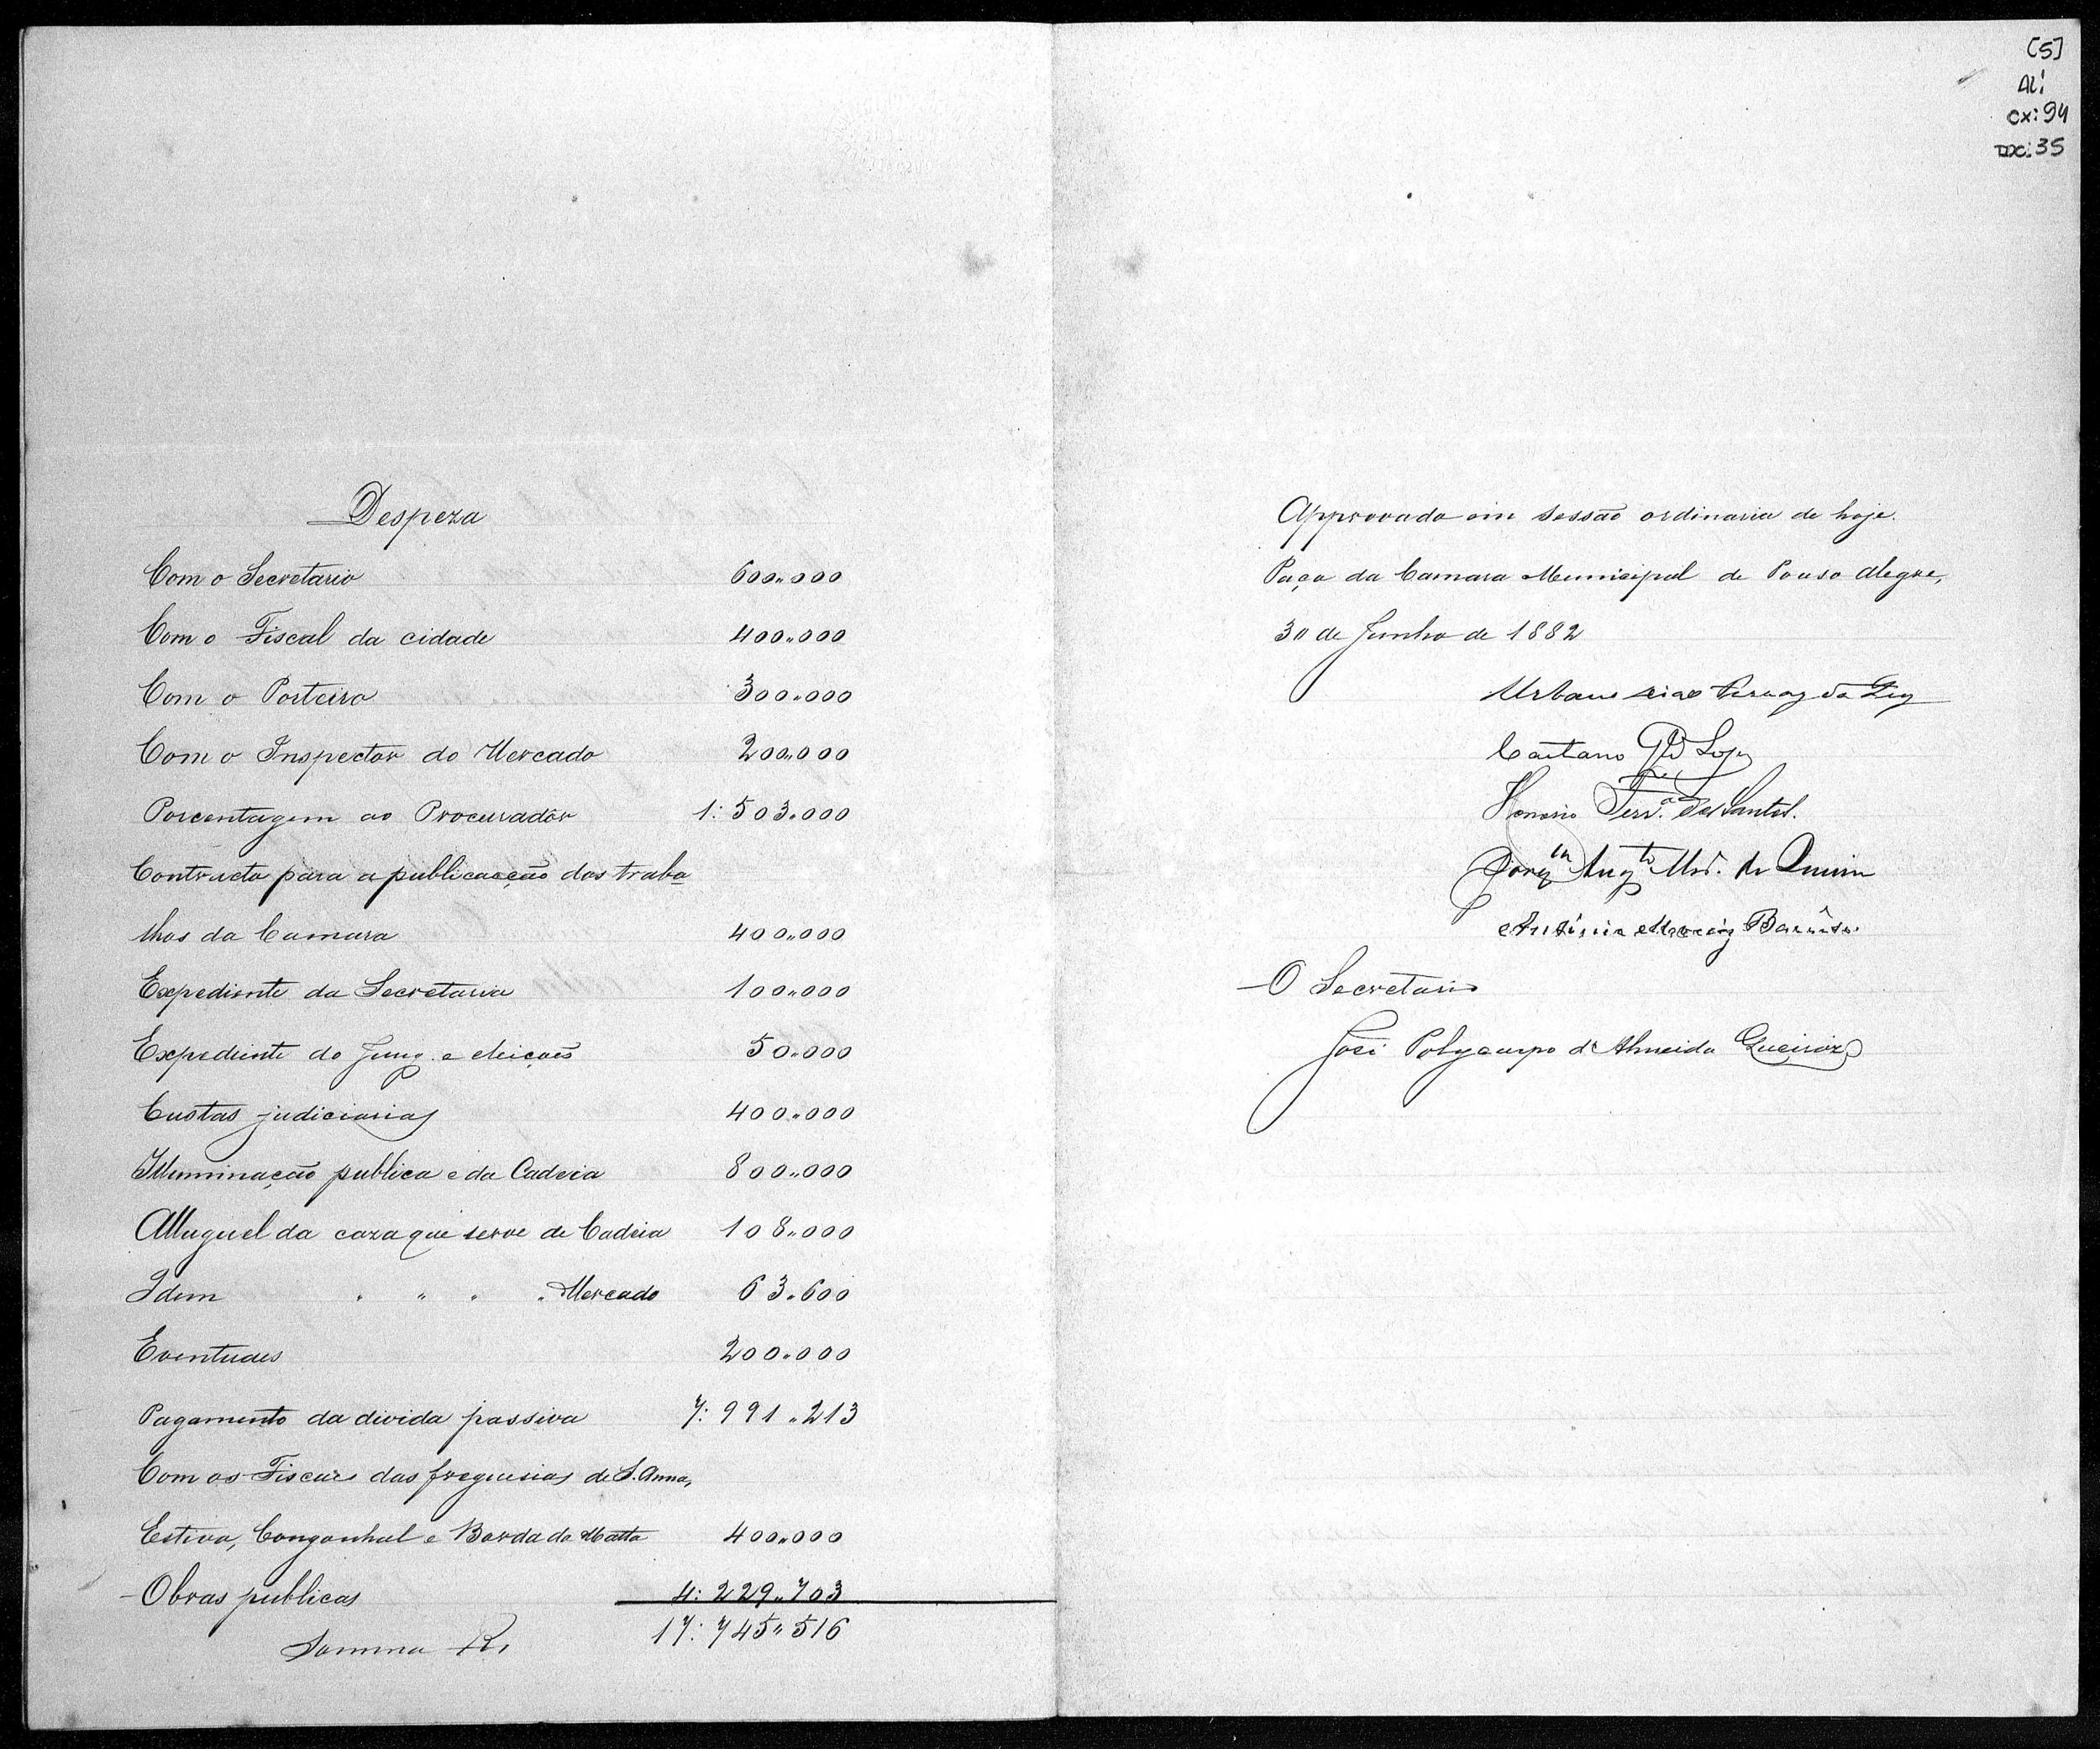 Despeza
Com o Secretario 600,,000
Com o Fiscal da cidade 400,,000
Com o Porteiro 300,,000
Com o Inspector do Mercado 200,,000
Porcentagem ao Procurador 1:503,000
Contracto para a publicacção dos traba
lhos da Camara 400,,000
Expediente da Secretaria 100,,000
Expediente do Jury e eleições 50,,000
Custas judiciarias 400,,000
Illuminação publica e da Cadeia 800,,000
Alluguel da caza que serve de Cadeia 108,,000
Idem " " " " Mercado 63,600
Eventuaes 200,000
Pagamento da divida passiva 7:991,,213
Com os Fiscaes das freguesias de S. Anna,
Estiva, Congonhal e Borda da Matta 400,,000
Obras publicas 4:229,,703
Somma Rs 17:745,,516
[5]
AL!
CX: 94
DOC: 35
Approvado em sessão ordinaria de hoje.
Paço da Camara Municipal de Pouso Alegre,
30 de Junho de 1882
Urbano
Caetano Lopes
Honorio Ferr.ª dos Santos.
Joaqm Augto de
Antonio
O Secretario
José Polycarpo d'Almeida Queiroz